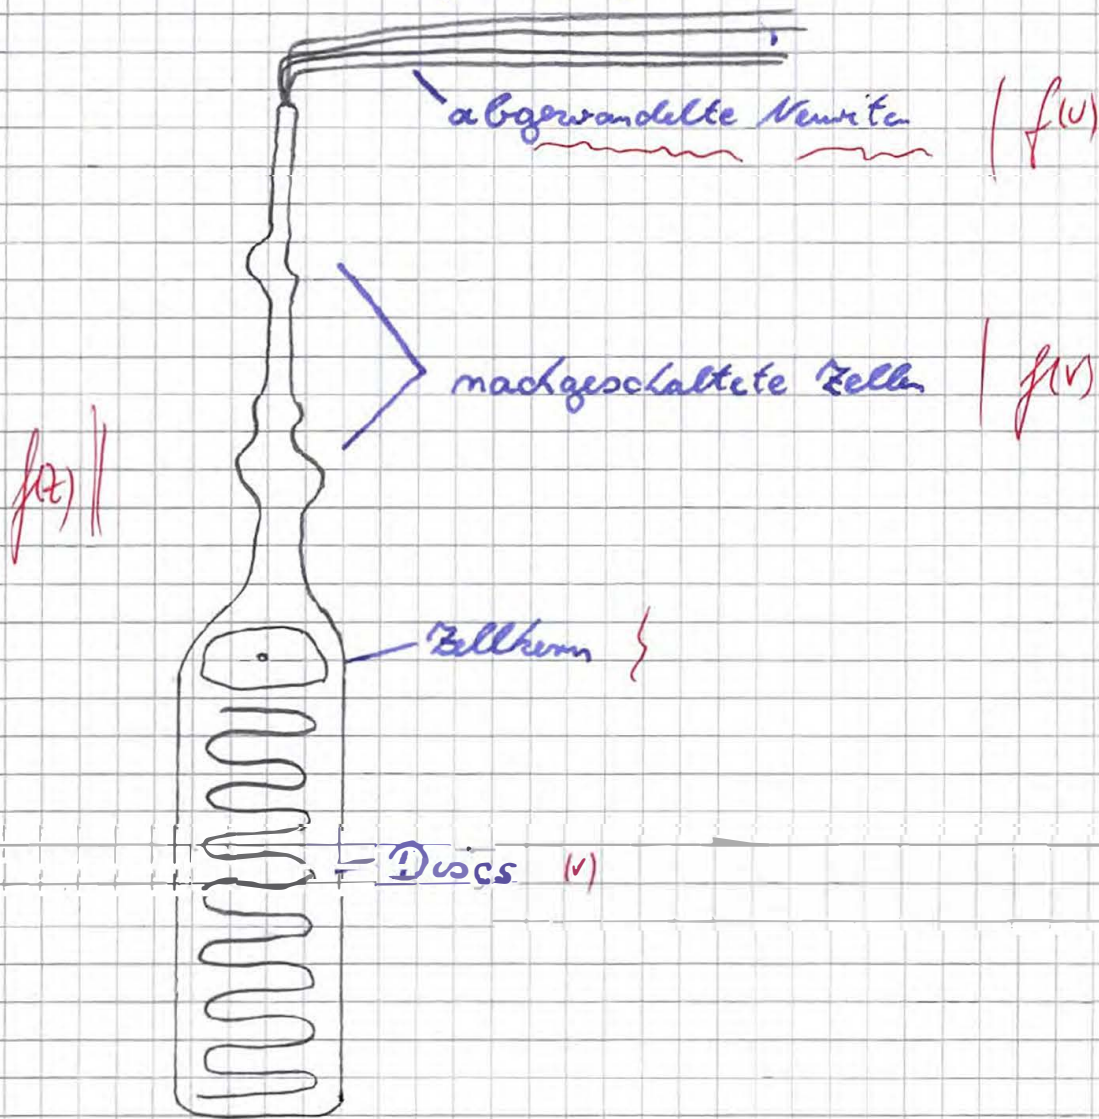 abgewandelte Neuriten | f(v)
nachgeschaltete Zellen | f(v)
f(z) ||
Zellkern
Discs (v)